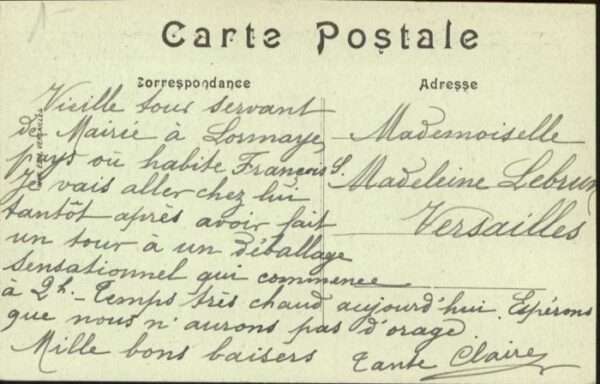 1-
Carte Postale
Correspondance
Adresse
Vieille tour servant
de Mairie à Lormaye,
pays où habite François S.
Je vais aller chez lui
tantôt après avoir fait
un tour à un déballage
sensationnel qui commence
à 2h. Temps très chaud aujourd'hui. Espérons
que nous n'aurons pas d'orage.
Mille bons baisers
Tante Claire
Mademoiselle
Madeleine Lebrun
Versailles